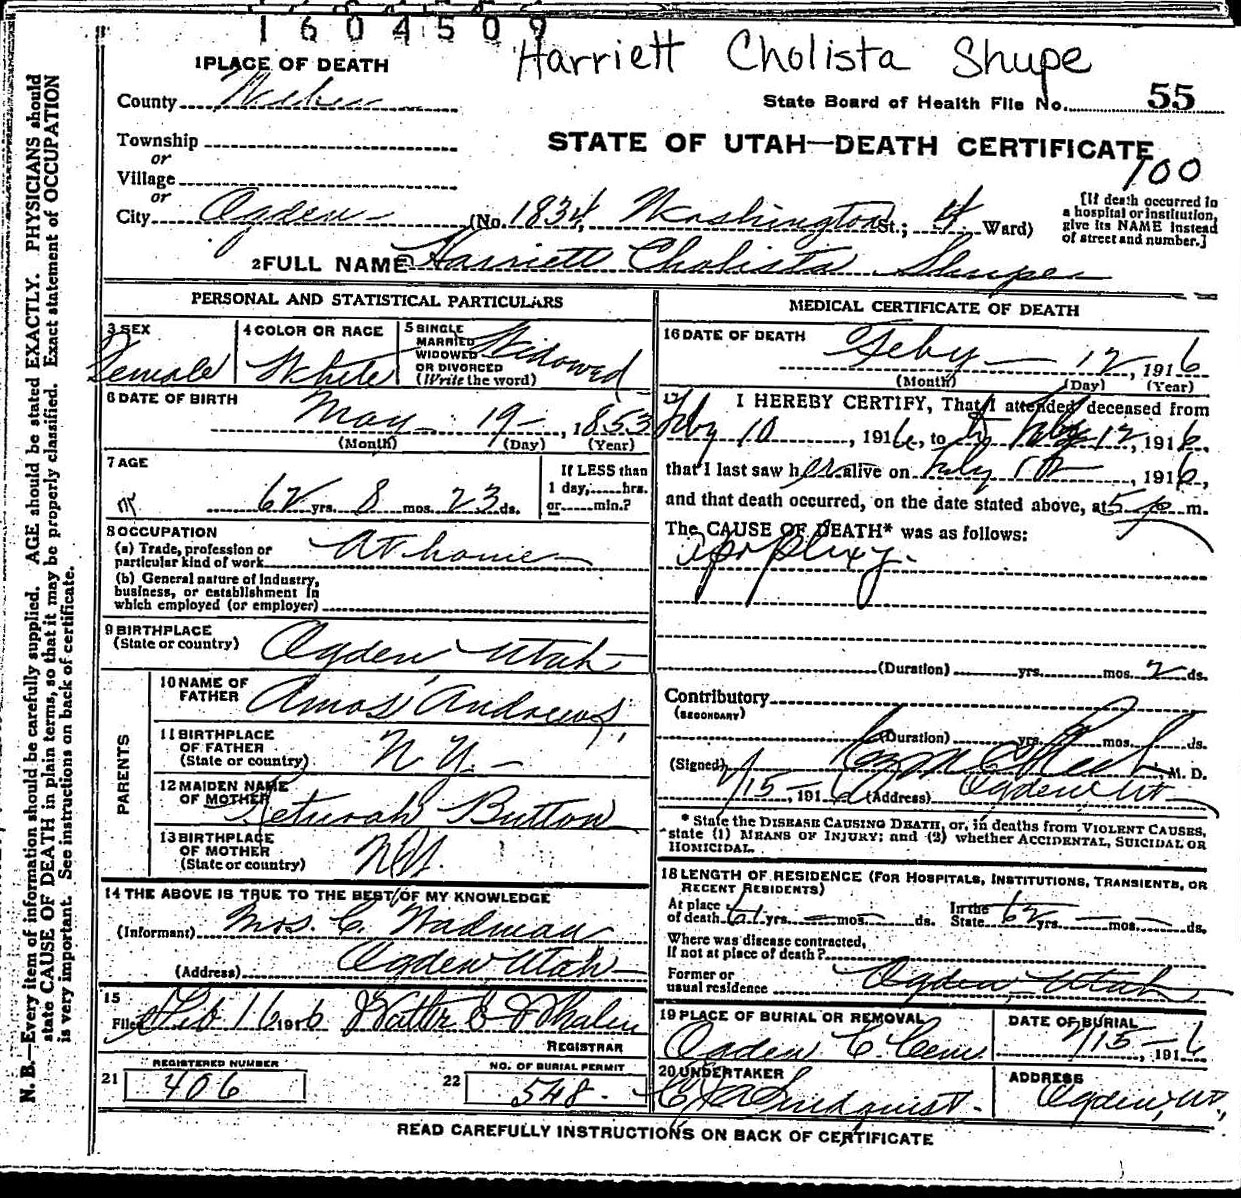 1604509
Harriett Cholista Shupe
1 PLACE OF DEATH
County Weber
State Board of Health File No. 55
Township
STATE OF UTAH—DEATH CERTIFICATE
or
Village
100
or
City Ogden (No. 1834, Washington St.; 4 Ward)
[If death occurred in
a hospital or institution,
give its NAME instead
of street and number.]
2 FULL NAME Harriett Cholista Shupe
PERSONAL AND STATISTICAL PARTICULARS
3 SEX
Female
4 COLOR OR RACE
White
5 SINGLE
MARRIED
WIDOWED
OR DIVORCED
(Write the word)
Widowed
6 DATE OF BIRTH
May 19, 1853
(Month) (Day) (Year)
7 AGE
62 yrs. 8 mos. 23 ds.
If LESS than
1 day,......hrs.
or......min.?
8 OCCUPATION
(a) Trade, profession or
particular kind of work At home
(b) General nature of industry,
business, or establishment in
which employed (or employer)
9 BIRTHPLACE
(State or country) Ogden Utah
PARENTS
10 NAME OF
FATHER Amos Andrews
11 BIRTHPLACE
OF FATHER
(State or country) N Y.
12 MAIDEN NAME
OF MOTHER Keturah Button
13 BIRTHPLACE
OF MOTHER
(State or country)
14 THE ABOVE IS TRUE TO THE BEST OF MY KNOWLEDGE
(Informant) Mrs. C. Wadman
(Address) Ogden Utah
15
Filed Feb 16 1916 Walter E Whalen
REGISTRAR
REGISTERED NUMBER
21 406
NO. OF BURIAL PERMIT
22 548
MEDICAL CERTIFICATE OF DEATH
16 DATE OF DEATH
Feby 12, 1916
(Month) (Day) (Year)
17 I HEREBY CERTIFY, That I attended deceased from
Feby 10, 1916, to Feby 12 1916,
that I last saw her alive on Feby, 1916,
and that death occurred, on the date stated above, at 5 p m.
The CAUSE OF DEATH* was as follows:
apoplexy.
(Duration) yrs. mos. 2 ds.
Contributory
(SECONDARY)
(Duration) yrs. mos. ds.
(Signed) M. D.
2/15, 1916 (Address) Ogden Ut
* State the DISEASE CAUSING DEATH, or, in deaths from VIOLENT CAUSES,
state (1) MEANS OF INJURY; and (2) whether ACCIDENTAL, SUICIDAL OR
HOMICIDAL.
18 LENGTH OF RESIDENCE (FOR HOSPITALS, INSTITUTIONS, TRANSIENTS, OR
RECENT RESIDENTS)
At place
of death 61 yrs. mos. ds.
In the
State 62 yrs. mos. ds.
Where was disease contracted,
if not at place of death?
Former or
usual residence Ogden Utah
19 PLACE OF BURIAL OR REMOVAL
Ogden C. Cem
DATE OF BURIAL
2/15, 1916
20 UNDERTAKER
Lindquist.
ADDRESS
Ogden, Ut,
READ CAREFULLY INSTRUCTIONS ON BACK OF CERTIFICATE
N. B.—Every item of information should be carefully supplied. AGE should be stated EXACTLY. PHYSICIANS should
state CAUSE OF DEATH in plain terms, so that it may be properly classified. Exact statement of OCCUPATION
is very important. See instructions on back of certificate.